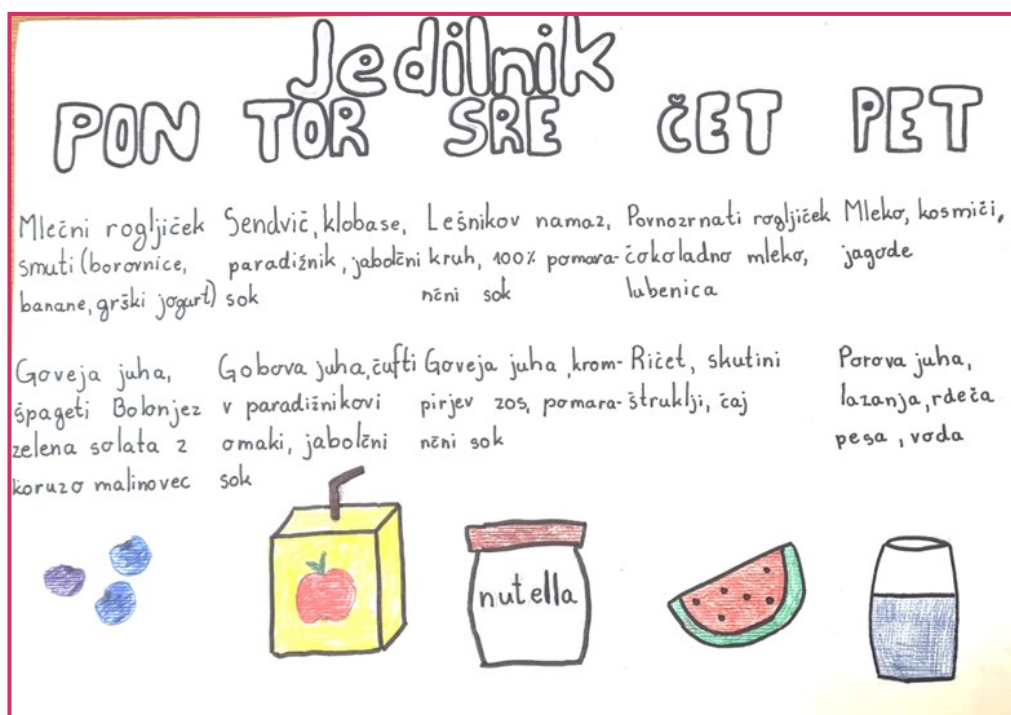 Jedilnik
PON TOR SRE ČET PET
Mlečni rogljiček
smuti (borovnice,
banane, grški jogurt)
Sendvič, klobase,
paradižnik, jabolčni
sok
Lešnikov namaz,
kruh, 100% pomara-
nčni sok
Povnozrnati rogljiček
čokoladno mleko,
lubenica
Mleko, kosmiči,
jagode
Goveja juha,
špageti Bolonjez
zelena solata z
koruzo malinovec
Gobova juha, čufti
v paradižnikovi
omaki, jabolčni
sok
Goveja juha, krom-
pirjev zos, pomara-
nčni sok
Ričet, skutini
štruklji, čaj
Porova juha,
lazanja, rdeča
pesa, voda
nutella